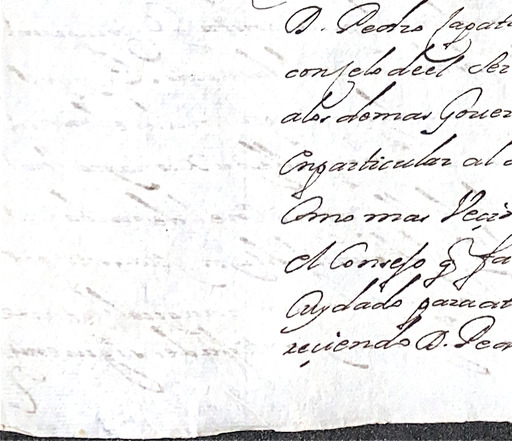 D. Pedro Zapat
consejo de el Ser
a los demas Gouer
En particular al
Como mas Veçin
el Consejo q̃ fa
Cuydado para at
reçiendo D. Pedr